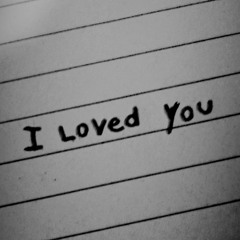 I Loved You